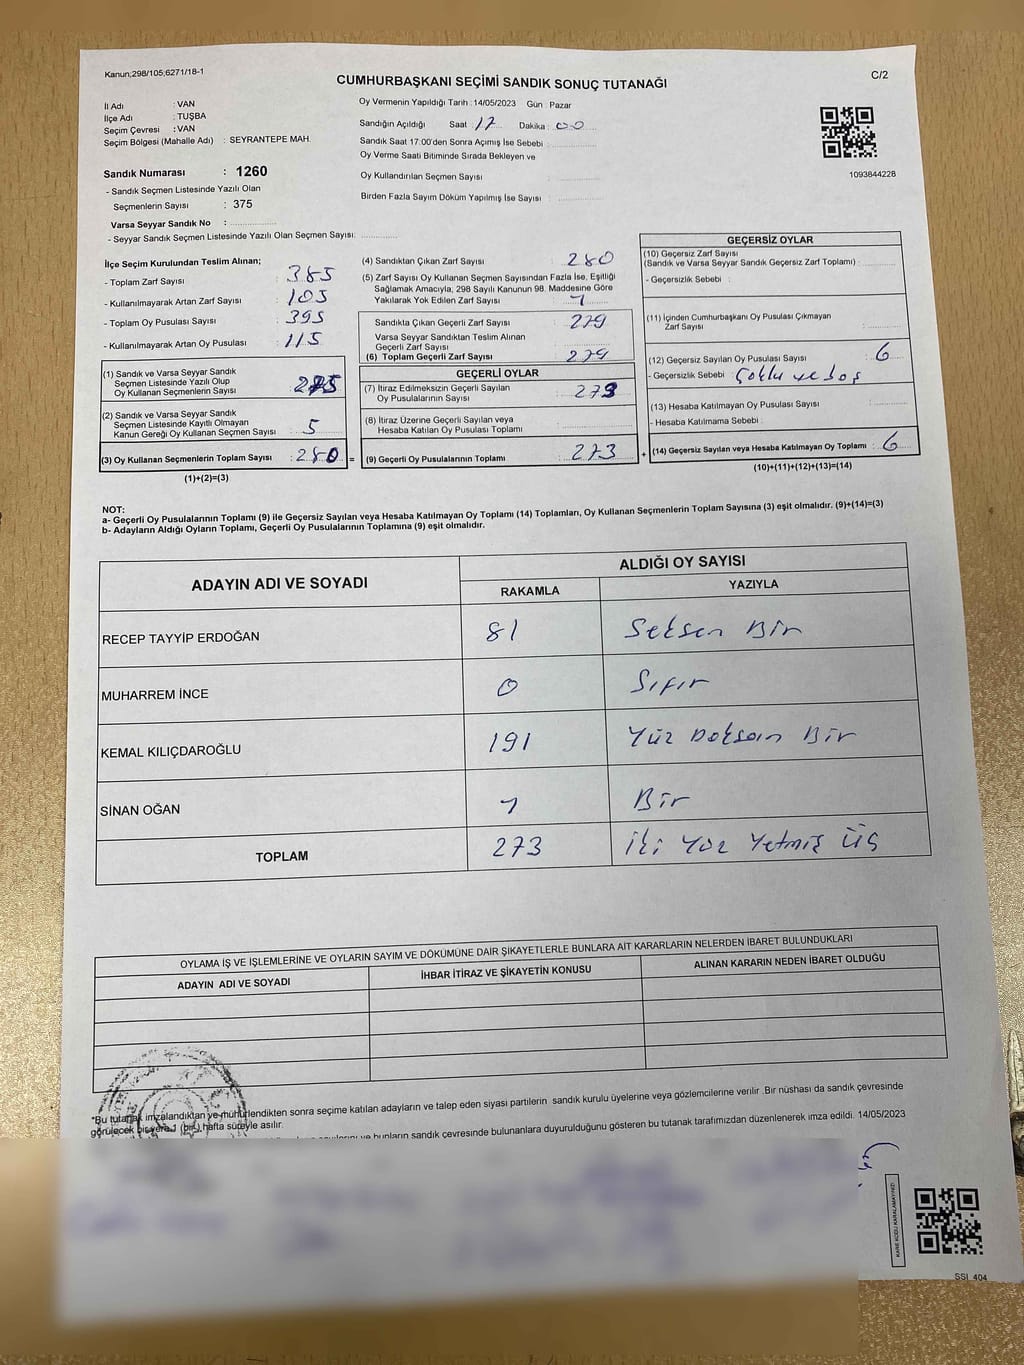 Kanun;298/105;6271/18-1
C/2
CUMHURBAŞKANI SEÇİMİ SANDIK SONUÇ TUTANAĞI
İl Adı : VAN
İlçe Adı : TUŞBA
Seçim Çevresi : VAN
Seçim Bölgesi (Mahalle Adı) : SEYRANTEPE MAH.
Sandık Numarası : 1260
- Sandık Seçmen Listesinde Yazılı Olan
Seçmenlerin Sayısı : 375
Varsa Seyyar Sandık No :
- Seyyar Sandık Seçmen Listesinde Yazılı Olan Seçmen Sayısı:
Oy Vermenin Yapıldığı Tarih : 14/05/2023 Gün : Pazar
Sandığın Açıldığı Saat : 17 Dakika : 00
Sandık Saat 17:00'den Sonra Açımış İse Sebebi :
Oy Verme Saati Bitiminde Sırada Bekleyen ve
Oy Kullandırılan Seçmen Sayısı :
Birden Fazla Sayım Döküm Yapılmış İse Sayısı :
1093844228
İlçe Seçim Kurulundan Teslim Alınan;
- Toplam Zarf Sayısı : 385
- Kullanılmayarak Artan Zarf Sayısı : 105
- Toplam Oy Pusulası Sayısı : 395
- Kullanılmayarak Artan Oy Pusulası : 115
(1) Sandık ve Varsa Seyyar Sandık
Seçmen Listesinde Yazılı Olup
Oy Kullanan Seçmenlerin Sayısı : 275
(2) Sandık ve Varsa Seyyar Sandık
Seçmen Listesinde Kayıtlı Olmayan
Kanun Gereği Oy Kullanan Seçmen Sayısı : 5
(3) Oy Kullanan Seçmenlerin Toplam Sayısı : 280 =
(1)+(2)=(3)
(4) Sandıktan Çıkan Zarf Sayısı : 280
(5) Zarf Sayısı Oy Kullanan Seçmen Sayısından Fazla İse, Eşitliği
Sağlamak Amacıyla, 298 Sayılı Kanunun 98. Maddesine Göre
Yakılarak Yok Edilen Zarf Sayısı : 1
Sandıkta Çıkan Geçerli Zarf Sayısı : 279
Varsa Seyyar Sandıktan Teslim Alınan
Geçerli Zarf Sayısı :
(6) Toplam Geçerli Zarf Sayısı : 279
GEÇERLİ OYLAR
(7) İtiraz Edilmeksizin Geçerli Sayılan
Oy Pusulalarının Sayısı : 273
(8) İtiraz Üzerine Geçerli Sayılan veya
Hesaba Katılan Oy Pusulası Toplamı :
(9) Geçerli Oy Pusulalarının Toplamı : 273 +
GEÇERSİZ OYLAR
(10) Geçersiz Zarf Sayısı
(Sandık ve Varsa Seyyar Sandık Geçersiz Zarf Toplamı) :
- Geçersizlik Sebebi :
(11) İçinden Cumhurbaşkanı Oy Pusulası Çıkmayan
Zarf Sayısı :
(12) Geçersiz Sayılan Oy Pusulası Sayısı : 6
- Geçersizlik Sebebi : Çoklu ve boş
(13) Hesaba Katılmayan Oy Pusulası Sayısı :
- Hesaba Katılmama Sebebi :
(14) Geçersiz Sayılan veya Hesaba Katılmayan Oy Toplamı : 6
(10)+(11)+(12)+(13)=(14)
NOT:
a- Geçerli Oy Pusulalarının Toplamı (9) ile Geçersiz Sayılan veya Hesaba Katılmayan Oy Toplamı (14) Toplamları, Oy Kullanan Seçmenlerin Toplam Sayısına (3) eşit olmalıdır. (9)+(14)=(3)
b- Adayların Aldığı Oyların Toplamı, Geçerli Oy Pusulalarının Toplamına (9) eşit olmalıdır.
ADAYIN ADI VE SOYADI
ALDIĞI OY SAYISI
RAKAMLA YAZIYLA
RECEP TAYYİP ERDOĞAN 81 Seksen Bir
MUHARREM İNCE 0 Sıfır
KEMAL KILIÇDAROĞLU 191 Yüz Doksan Bir
SİNAN OĞAN 1 Bir
TOPLAM 273 İki Yüz Yetmiş Üç
OYLAMA İŞ VE İŞLEMLERİNE VE OYLARIN SAYIM VE DÖKÜMÜNE DAİR ŞİKAYETLERLE BUNLARA AİT KARARLARIN NELERDEN İBARET BULUNDUKLARI
ADAYIN ADI VE SOYADI İHBAR İTİRAZ VE ŞİKAYETİN KONUSU ALINAN KARARIN NEDEN İBARET OLDUĞU
*Bu tutanak imzalandıktan ve mühürlendikten sonra seçime katılan adayların ve talep eden siyasi partilerin sandık kurulu üyelerine veya gözlemcilerine verilir .Bir nüshası da sandık çevresinde
görülecek bir yere 1 (bir) hafta süreyle asılır.
ve bunların sandık çevresinde bulunanlara duyurulduğunu gösteren bu tutanak tarafımızdan düzenlenerek imza edildi. 14/05/2023
KARE KODU KARALAMAYINIZ!
SSI_404